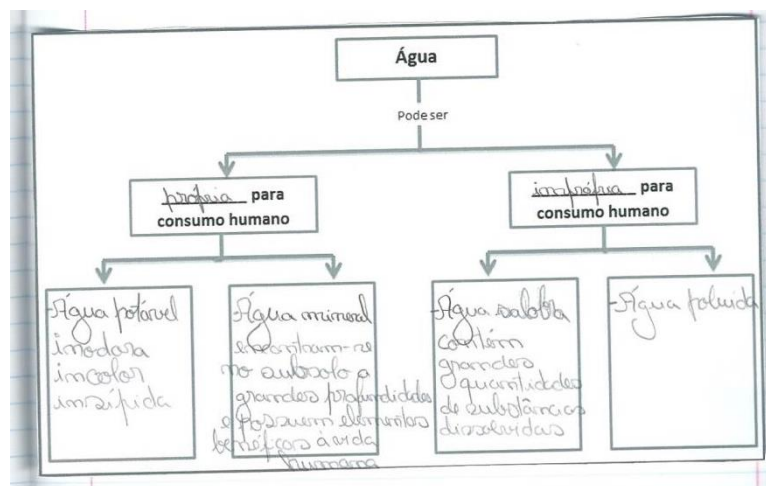 Água
Pode ser
própria para
consumo humano
imprópria para
consumo humano
-Água potável
inodora
incolor
insípida
-Água mineral
encontram-se
no subsolo a
grandes profundidades
e possuem elementos
benéficos à vida
humana
-Água salobra
contém
grandes
quantidades
de substâncias
dissolvidas
-Água poluida